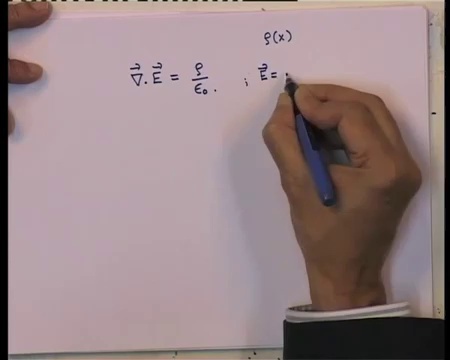 ρ(x)
∇⃗.E⃗ = ρ/ε₀. ; E⃗ =